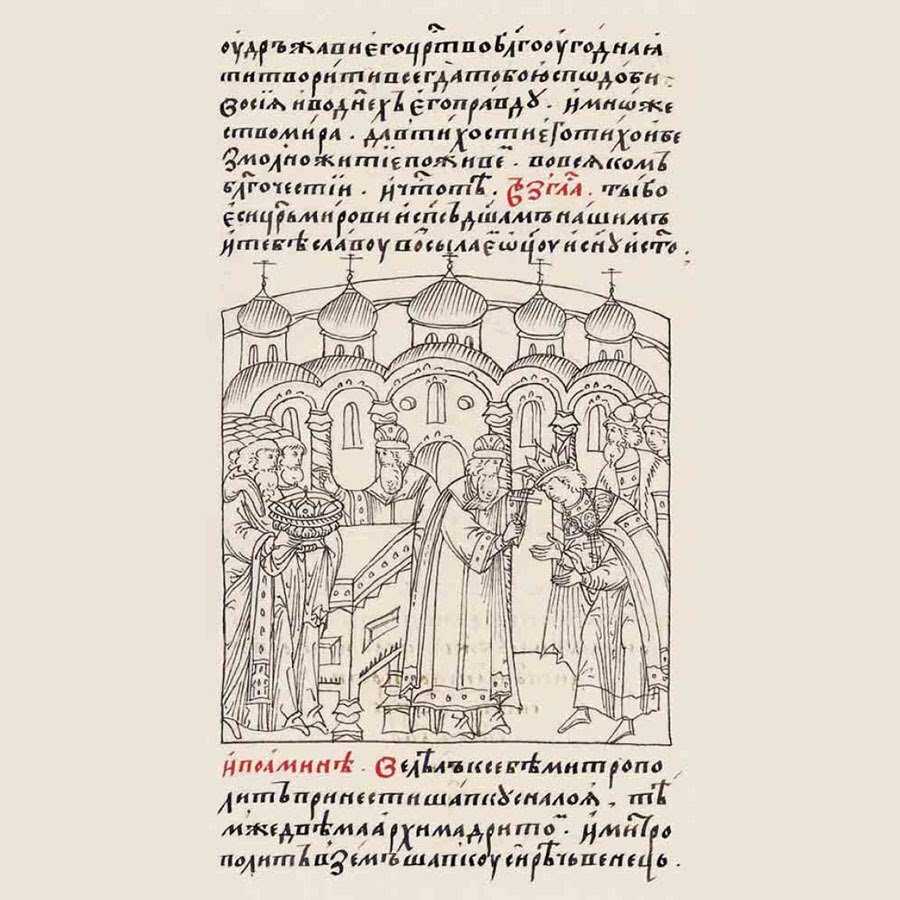 оудръжави его црⷭ҇тво блг҃оугоднаꙗ
ти творити всегда тобою сподоби :
Восиꙗи во дн҃ехъ его правду . и множе
ство мира . да в тихости его тихо и бе
змолно житие поживеⷨ . во всякомъ
блгⷭ҇очестии . и чⷭ҇тотѣ . въꙁглⷭ҇а . ты бо
еси цр҃ь мирови и сп҃съ дш҃амъ нашимъ
и тебѣ славоу восылаеⷨ оц҃оу и сн҃у и ст҃о .
и по аминѣ . Велѣлъ к себѣ митропо
литъ принести шапку с налоꙗ , тѣ
мже двѣма архимадритоⷨ . и митро
политъ вꙁемъ шапкоу сирѣчь венець .